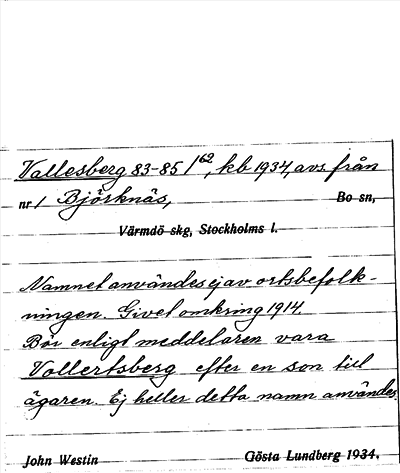 Vallesberg 83-85/162, kb 1934, avs. från
nr 1 Björknäs, Bo sn,
Värmdö skg, Stockholms l.
Namnet användes ej av ortsbefolk-
ningen. Givet omkring 1914.
Bör enligt meddelaren vara
Vollertsberg efter en son till
ägaren. Ej heller detta namn användes.
John Westin Gösta Lundberg 1934.